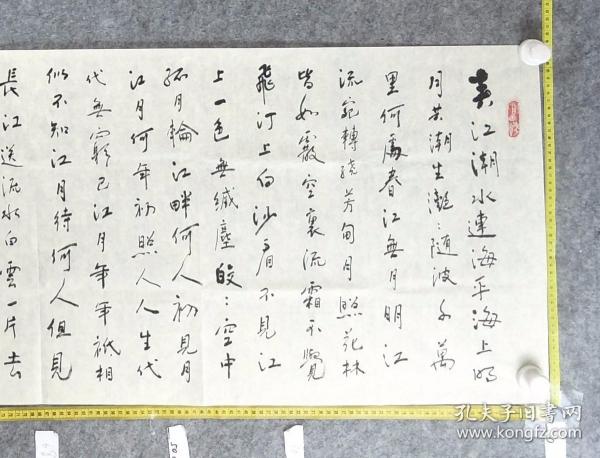 春江潮水連海平海上明
月共潮生灔：随波千萬
里何處春江無月明江
流宛轉繞芳甸月照花林
皆如霰空裏流霜不覺
飛汀上白沙看不見江
上一色無纖塵皎：空中
孤月輪江畔何人初見月
江月何年初照人人生代
代無窮已江月年年祇相
似不知江月待何人但見
長江送流水白雲一片去
孔夫子旧书网
www.kongfz.com